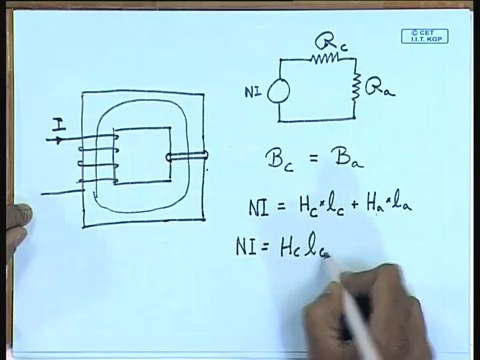 © CET
I.I.T. KGP
I
NI
R_c
R_a
B_c = B_a
NI = H_c * l_c + H_a * l_a
NI = H_c l_c